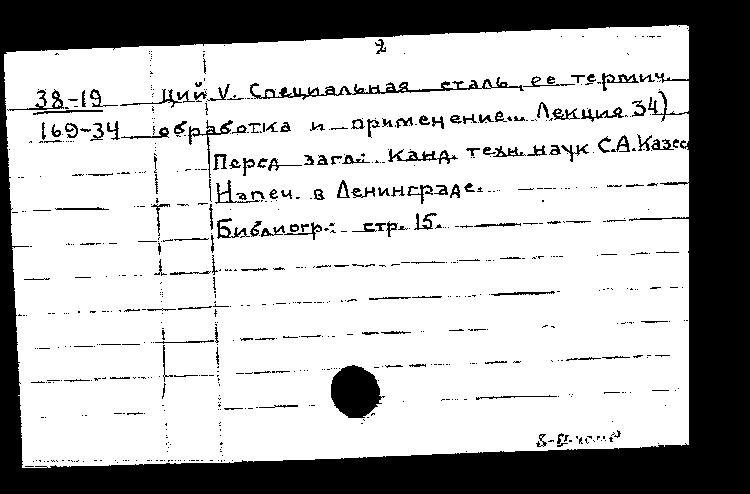 2
38-19 ций V. Специальная сталь, ее термич.
169-34 обработка и применение... Лекция 34).
Перед загл.: канд. техн. наук С.А. Казее
Напеч. в Ленинграде.
Библиогр.: стр. 15.